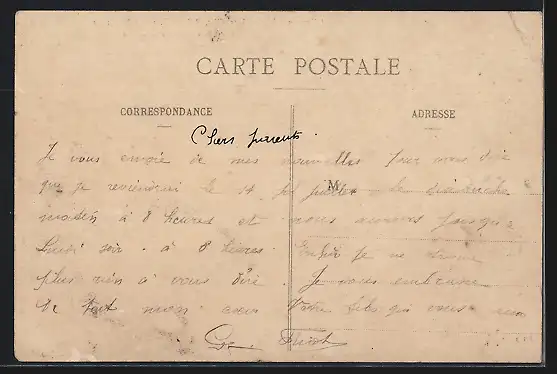 CARTE POSTALE
CORRESPONDANCE
ADRESSE
Chers parents.
Je vous envoie de mes nouvelles pour vous dire
que je reviendrai le 14 juillet le dimanche
M
matin à 8 heures et nous aurons jusqu'à
lundi soir à 8 heures. Enfin je ne trouve
plus rien à vous dire. Je vous embrasse
de tout mon cœur Votre fils qui vous